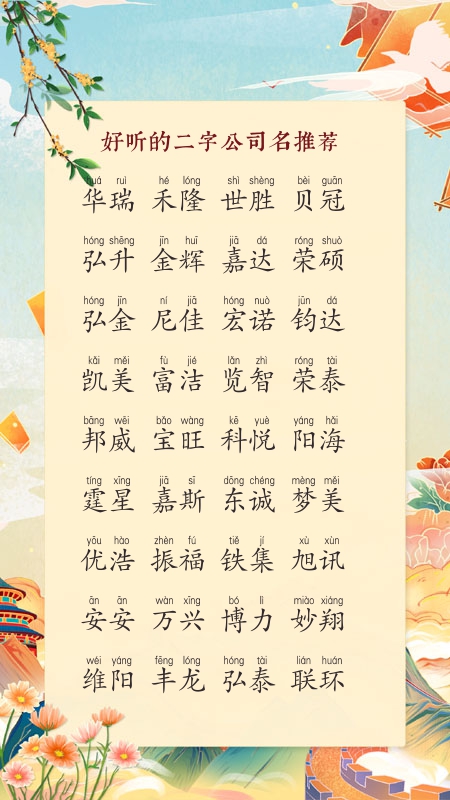 好听的二字公司名推荐
huá ruì hé lóng shì shèng bèi guān
华瑞 禾隆 世胜 贝冠
hóng shēng jīn huī jiā dá róng shuò
弘升 金辉 嘉达 荣硕
hóng jīn ní jiā hóng nuò jūn dá
弘金 尼佳 宏诺 钧达
kǎi měi fù jié lǎn zhì róng tài
凯美 富洁 览智 荣泰
bāng wēi bǎo wàng kē yuè yáng hǎi
邦威 宝旺 科悦 阳海
tíng xīng jiā sī dōng chéng mèng měi
霆星 嘉斯 东诚 梦美
yōu hào zhèn fú tiě jí xù xùn
优浩 振福 铁集 旭讯
ān ān wàn xīng bó lì miào xiáng
安安 万兴 博力 妙翔
wéi yáng fēng lóng hóng tài lián huán
维阳 丰龙 弘泰 联环